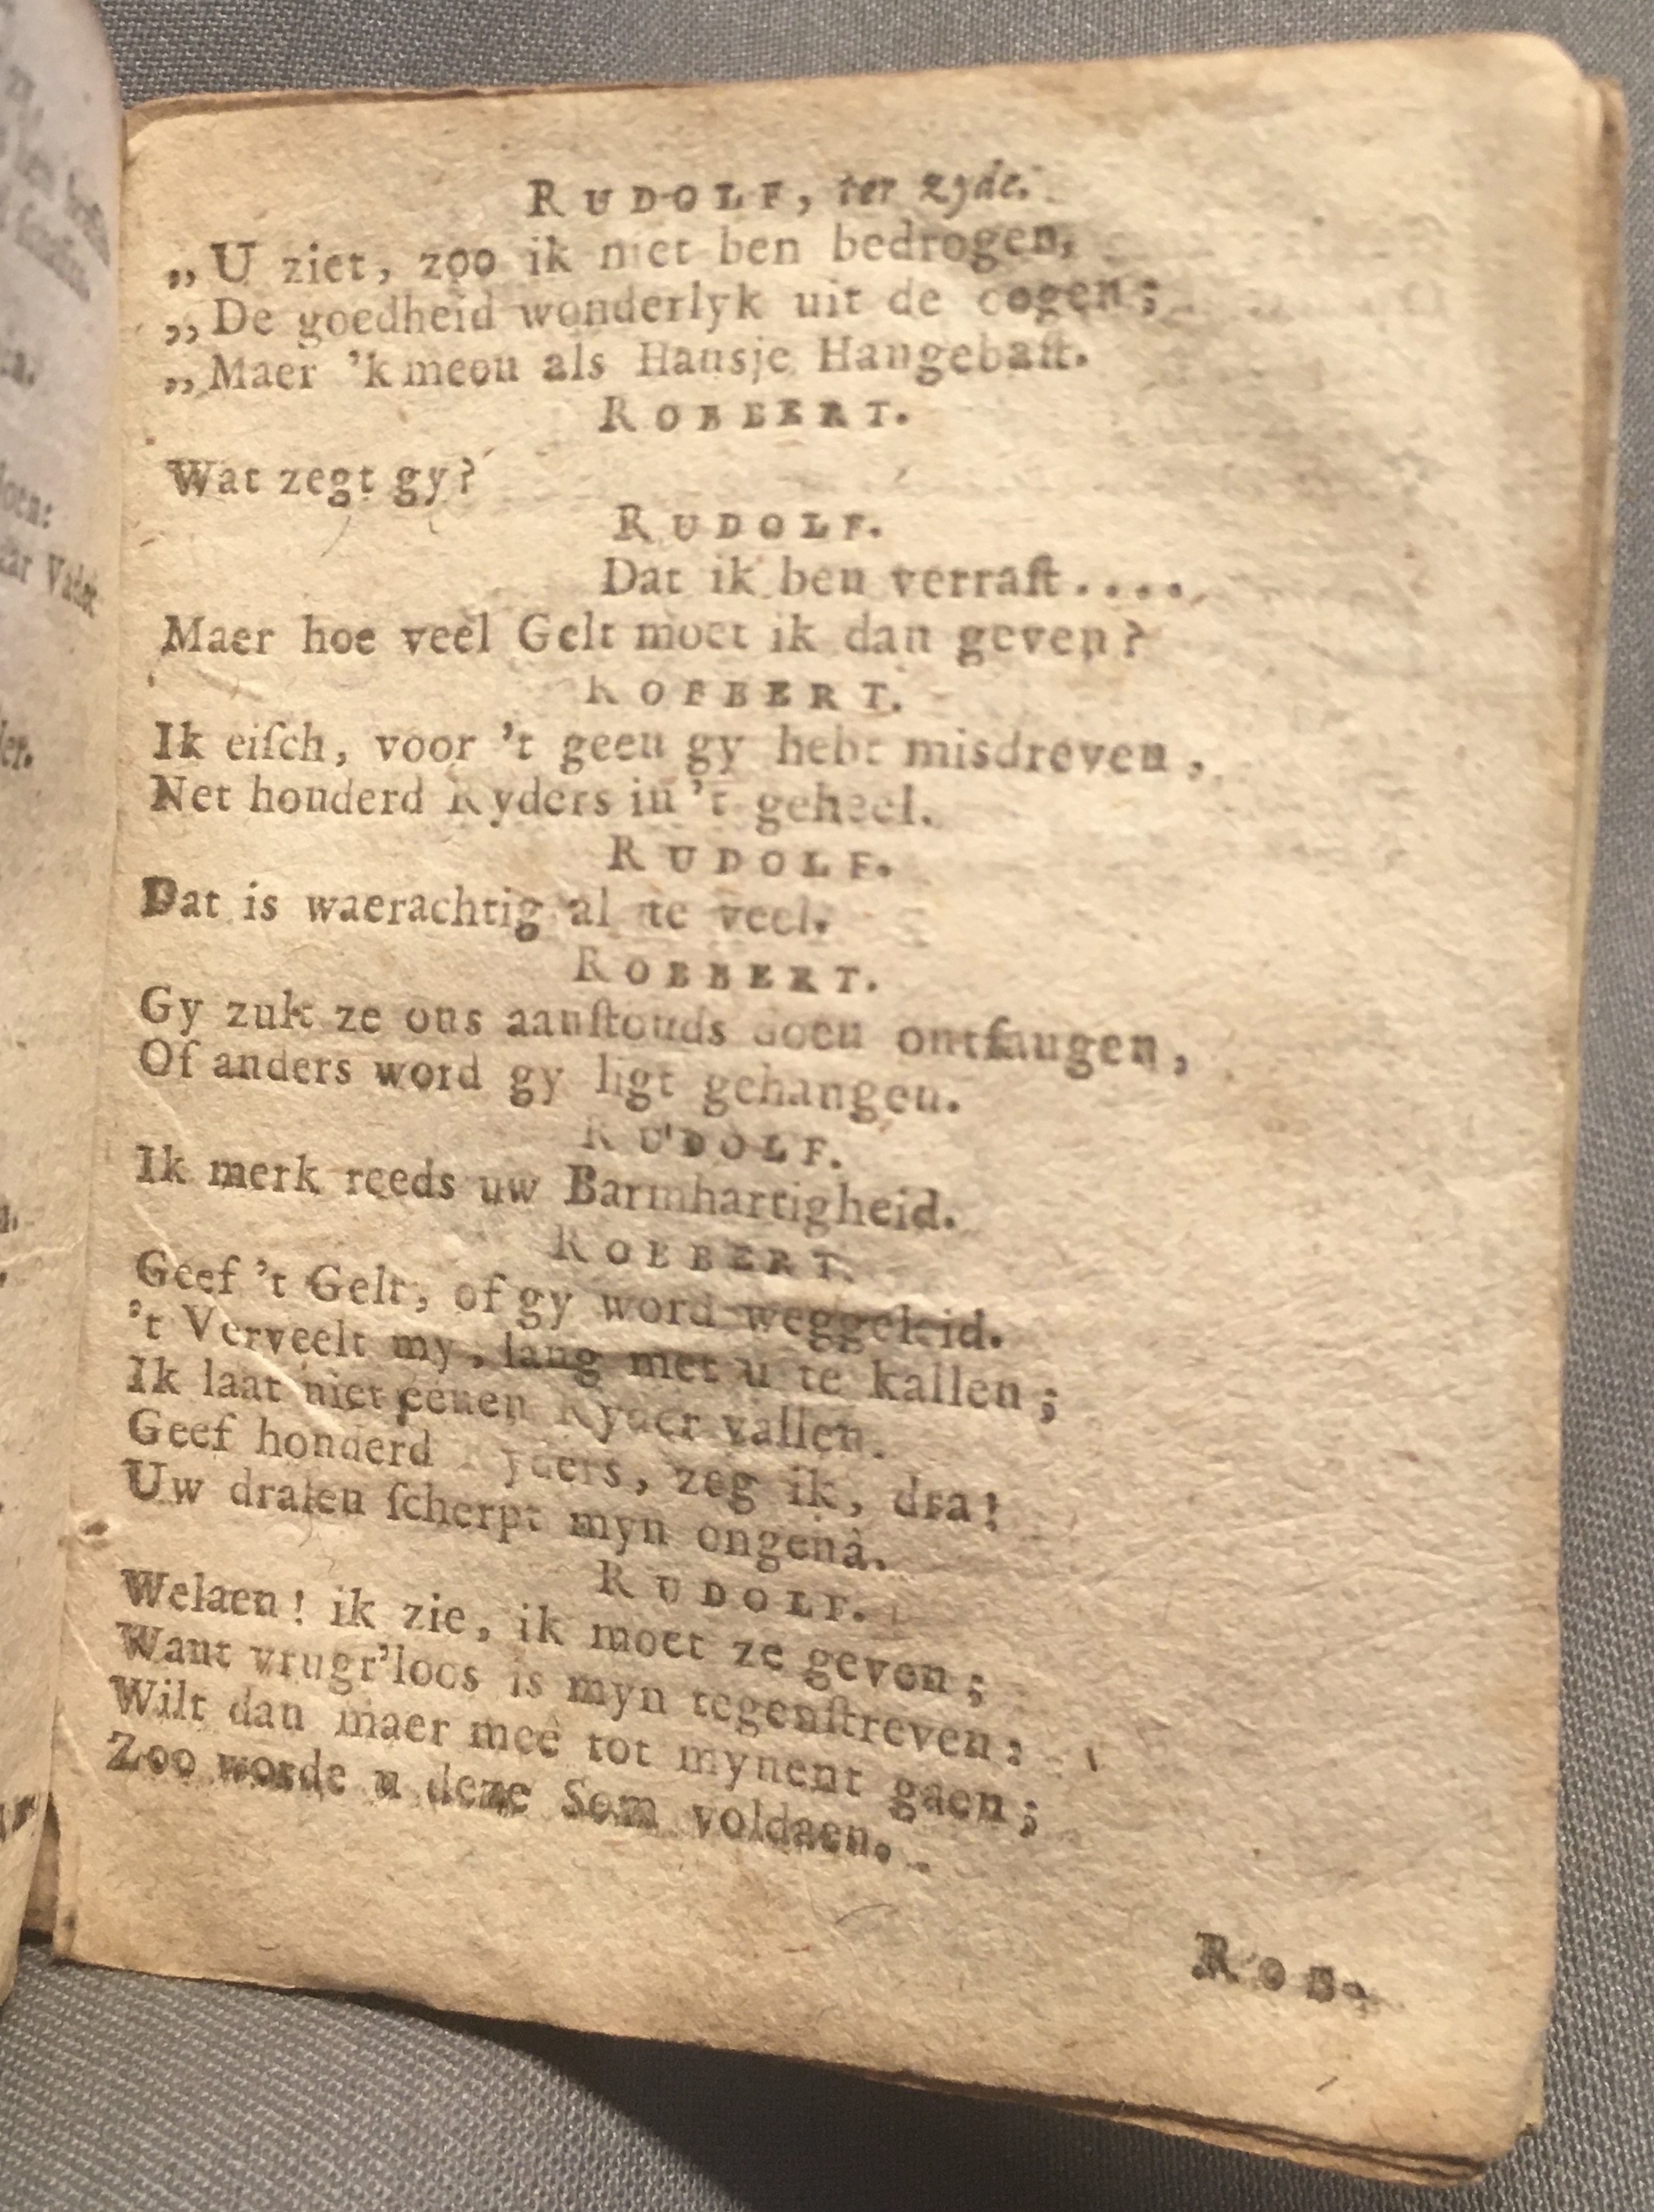 RUDOLF, ter zyde.
„U ziet, zoo ik niet ben bedrogen,
„De goedheid wonderlyk uit de oogen;
„Maer 'k meen als Hansje Hangebaſt.
ROBBERT.
Wat zegt gy?
RUDOLF.
Dat ik ben verraſt....
Maer hoe veel Gelt moet ik dan geven?
ROBBERT.
Ik eiſch, voor 't geen gy hebt misdreven,
Net honderd Ryders in 't geheel.
RUDOLF.
Dat is waerachtig al te veel.
ROBBERT.
Gy zult ze ons aanſtonds doen ontfangen,
Of anders word gy ligt gehangen.
RUDOLF.
Ik merk reeds uw Barmhartigheid.
ROBBERT.
Geef 't Gelt, of gy word weggeleid.
't Verveelt my, lang met u te kallen;
Ik laat niet eenen Ryder vallen.
Geef honderd Ryders, zeg ik, dra!
Uw dralen ſcherpt myn ongenâ.
RUDOLF.
Welaen! ik zie, ik moet ze geven;
Want vrugt'loos is myn tegenſtreven:
Wilt dan maer meê tot mynent gaen;
Zoo worde u deze Som voldaen.
ROB-